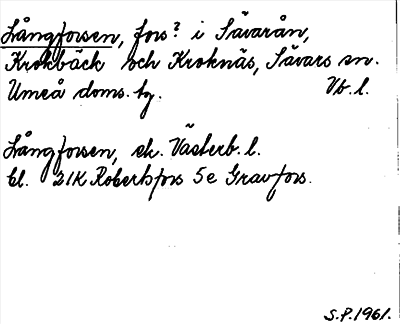 Långforsen, fors? i Sävarån,
Krokbäck och Kroknäs, Sävars sn.
Umeå doms. tg. Vb. l.
Långforsen, ek. Västerb. l.
bl. 21K Robertsfors 5e Gravfors.
S.P. 1961.